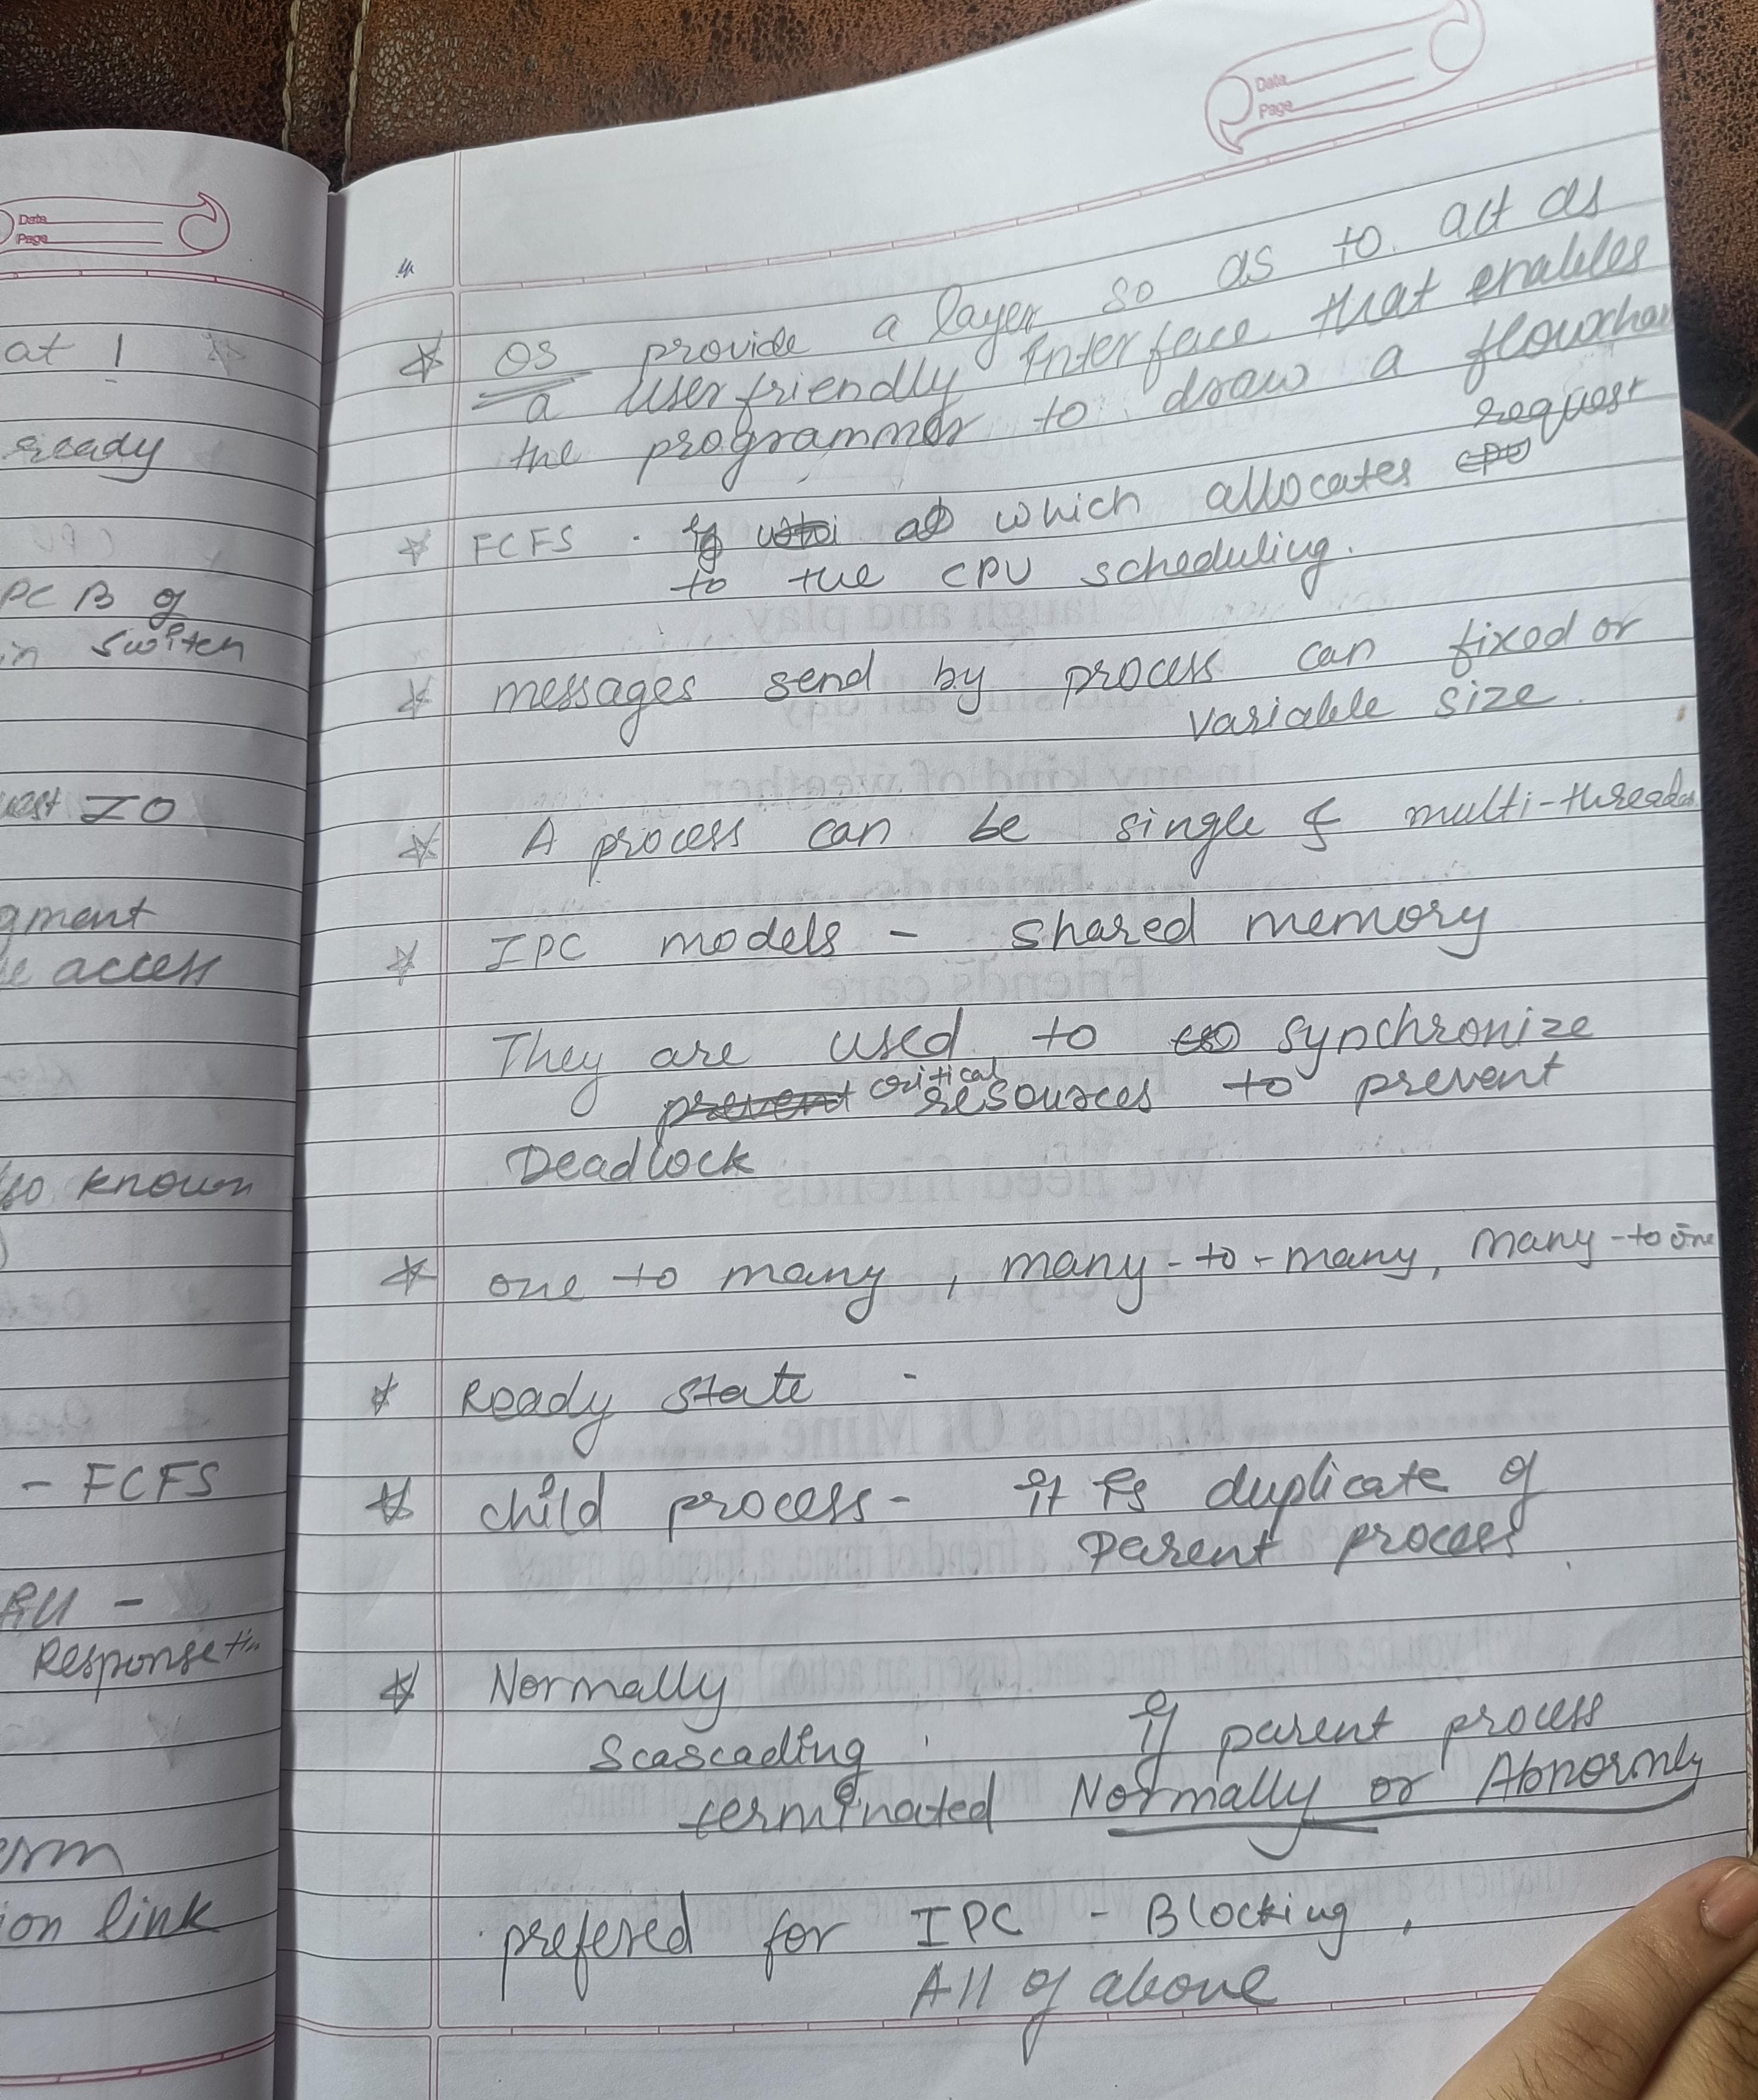 Date
Page
at 1
ready
PCB of
in switch
IO
gment
access
so known
- FCFS
RU -
Response
ion link
Date
Page
OS provide a layer so as to act as
a user friendly interface that enables
the programmer to draw a flowchar
request
FCFS . which allocates CPU
to the CPU scheduling.
messages send by process can fixed or
variable size.
A process can be single & multi-threaded
IPC models - shared memory
They are used to synchronize
prevent critical resources to prevent
Deadlock
one to many, many-to-many, many-to one
Ready state -
child process - it is duplicate of
Parent process
Normally
Scascading . if parent process
terminated Normally or Abnormly
prefered for IPC - Blocking,
All of above